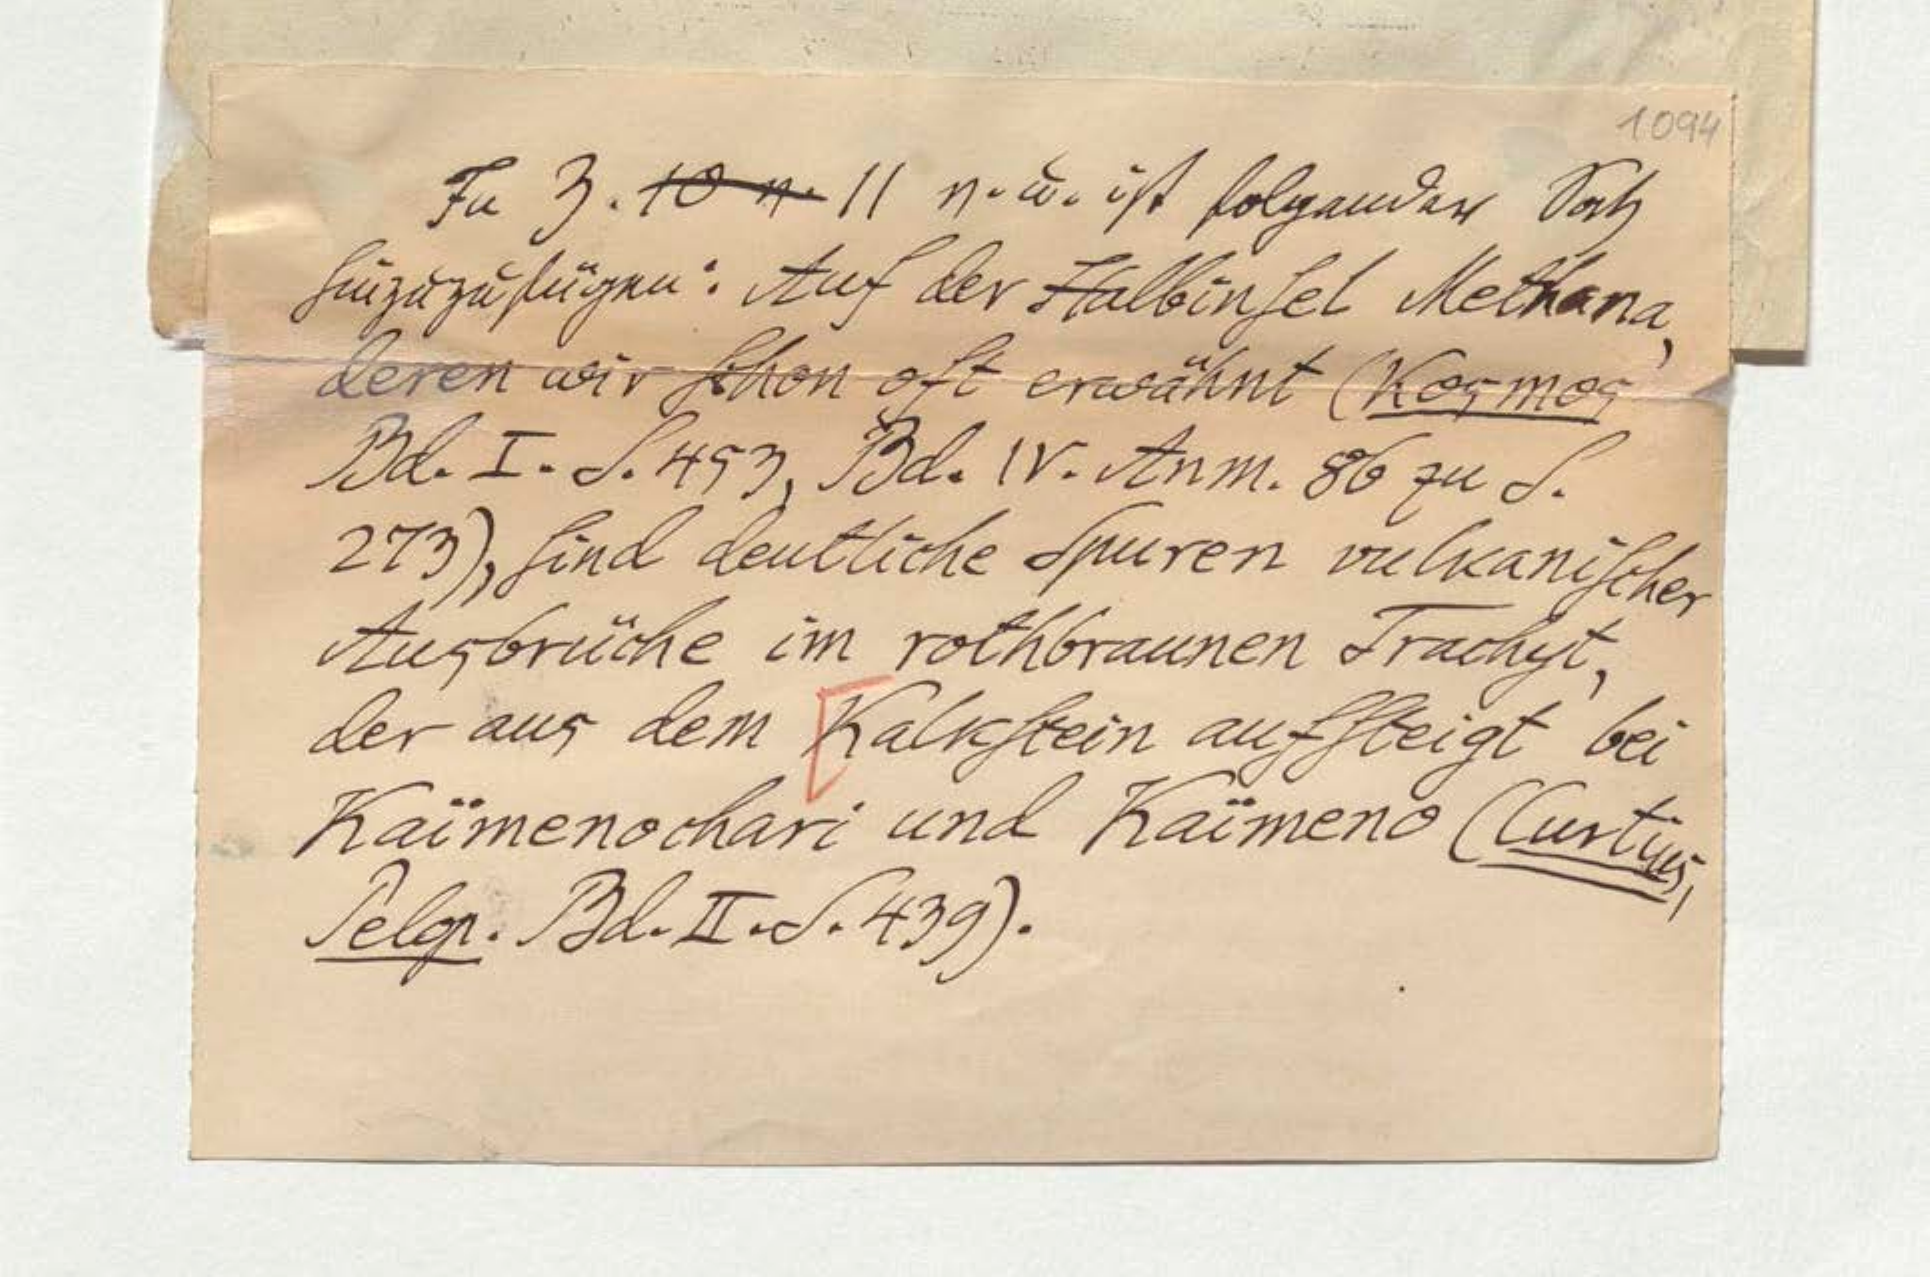 1094
In Z. 10 u. 11 v. u. ist folgender Satz
hinzuzufügen: Auf der Halbinsel Methana,
deren wir schon oft erwähnt (Kosmos
Bd. I. S. 453, Bd. IV. Anm. 86 zu S.
273), sind deutliche Spuren vulkanischer
Ausbrüche im rothbraunen Trachyt,
der aus dem Kalkstein aufsteigt bei
Kaïmenochari und Kaïmeno (Curtius,
Pelop. Bd. II. S. 439).